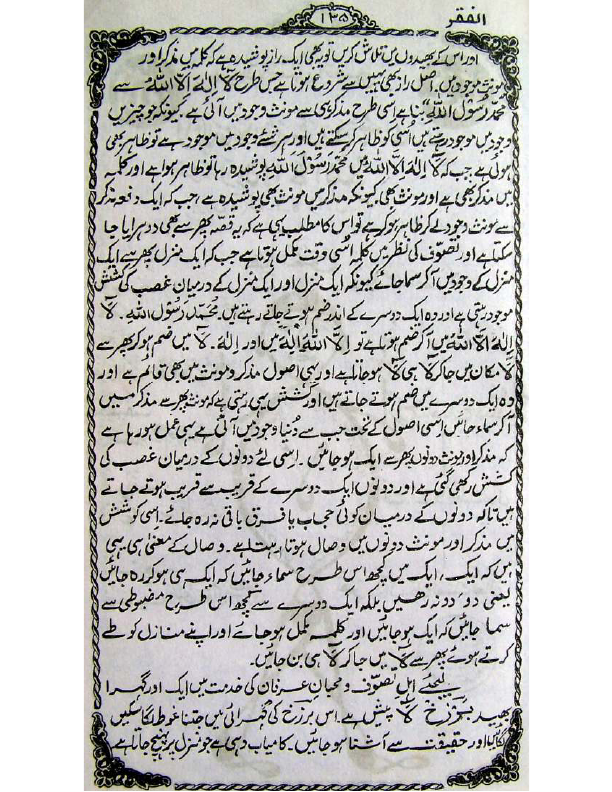 ۱۳۵ الفقر
اور اس کے بھیدوں میں تلاش کریں تو یہ بھی ایک راز پوشیدہ ہے کہ کلمہ میں مذکر اور
مونث موجود ہیں۔ اصل راز بھی یہیں سے شروع ہوتا ہے جس طرح لَآ اِلٰهَ اِلَّا اللهُ سے
مُحَمَّدٌ رَّسُوْلُ اللهِ بنا ہے اسی طرح مذکر ہی سے مونث وجود میں آئی ہے۔ کیونکہ جو چیزیں
وجود میں موجود رہتے ہیں اُسی کو ظاہر کر سکتے ہیں اور ہر شئے وجود میں موجود ہے تو ظاہر بھی
ہوئی ہے جب کہ لَآ اِلٰهَ اِلَّا اللهُ میں مُحَمَّدٌ رَّسُوْلُ اللهِ پوشیدہ رہا تو ظاہر ہوا ہے اور کلمہ
میں مذکر بھی ہے اور مونث بھی۔ کیونکہ مذکر میں مونث بھی پوشیدہ ہے۔ جب کہ ایک دفعہ مذکر
سے مونث وجود لے کر ظاہر ہو کر ہے تو اس کا مطلب یہی ہے کہ یہ قصّہ پھر سے بھی دہرایا جا
سکتا ہے اور تصوّف کی نظر میں کلمہ اُسی وقت مکمل ہوتا ہے جب کہ ایک منزل پھر سے ایک
منزل کے وجود میں آ کر سما جائے کیونکہ ایک منزل اور ایک منزل کے درمیان غصب کی کشش
موجود رہتی ہے اور وہ ایک دوسرے کے اندر ضم ہوتے جاتے رہتے ہیں۔ مُحَمَّدٌ رَّسُوْلُ اللهِ۔ لَآ
اِلٰهَ اِلَّا اللهُ میں آ کر ضم ہوتا ہے تو اِلَّا اللهُ اِلٰهَ میں اور اِلٰهَ۔ لَآ میں ضم ہو کر پھر سے
لَآ مکان میں جا کر لَآ ہی لَآ ہو جاتا ہے اور یہی اصول مذکر و مونث میں بھی قائم ہے اور
وہ ایک دوسرے میں ضم ہوتے جاتے ہیں اور کشش یہی رہتی ہے کہ مونث پھر سے مذکر میں
آ کر سماء جائیں اِسی اصول کے تحت جب سے دُنیا وجود میں آئی ہے یہی عمل ہو رہا ہے
کہ مذکر اور مونث دونوں پھر سے ایک ہو جائیں۔ اِسی لئے دونوں کے درمیان غصب کی
کشش رکھی گئی ہے اور دونوں ایک دوسرے کے قریب سے قریب ہوتے جاتے
ہیں تاکہ دونوں کے درمیان کوئی حجاب یا فرق باقی نہ رہ جائے۔ اِسی کوشش
میں مذکر اور مونث دونوں میں وصال ہوتا رہتا ہے۔ وصال کے معنیٰ ہی یہی
ہیں کہ ایک، ایک میں کچھ اس طرح سماء جائیں کہ ایک ہی ہو کر رہ جائیں
یعنی دو، دو نہ رھیں بلکہ ایک دوسرے سے کچھ اس طرح مضبوطی سے
سما جائیں کہ ایک ہو جائیں اور کلمہ مکمل ہو جائے اور اپنے منازل کو طے
کرتے ہوئے پھر سے لَآ میں جا کر لَآ ہی بن جائیں۔
لیجئے اہلِ تصوّف و محبانِ عرفان کی خدمت میں ایک اور گہرا
بھید برزخِ لَآ پیش ہے۔ اس برزخ کی گہرائی میں جتنا غوطہ لگا سکیں
لگائیں اور حقیقت سے آشنا ہو جائیں۔ کامیاب وہی ہے جو منزل پر پہنچ جاتا ہے